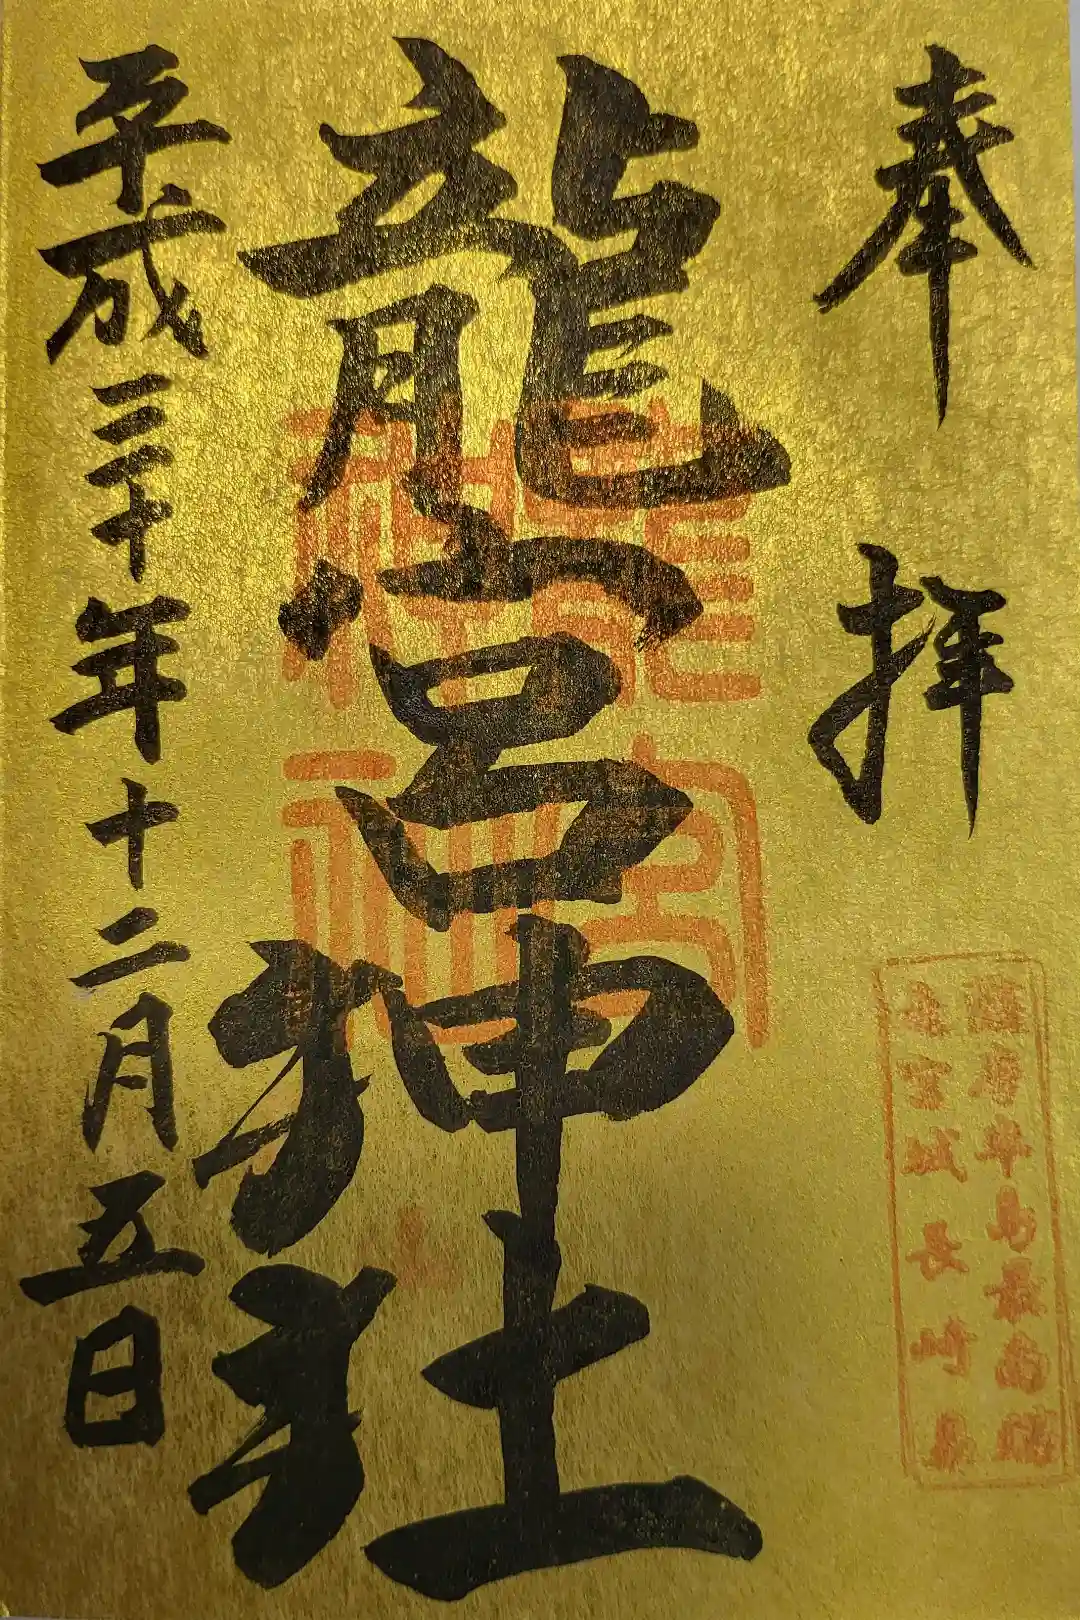 奉拝
薩摩半島最南端
竜宮城長崎鼻
龍宮神社
平成三十年十二月五日